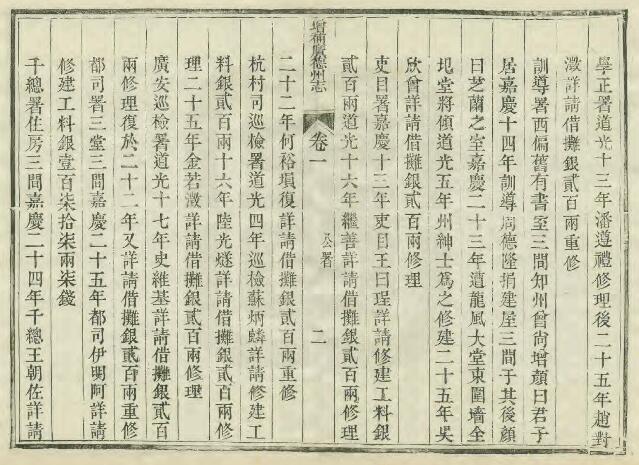 學正署道光十三年潘遵禮修理後二十五年趙對
澂詳請借攤銀貳百兩重修
訓導署西偏舊有書室三間知州曾尚增顏曰君子
居嘉慶十四年訓導周德隆捐建屋三間于其後顏
曰芝蘭之室嘉慶二十三年遭龍風大堂東圍墻全
圮堂將傾道光五年州紳士爲之修建二十五年吳
欣曾詳請借攤銀貳百兩修理
吏目署嘉慶十三年吏目王曰珵詳請修建工料銀
貳百兩道光十六年繼善詳請借攤銀貳百兩修理
增補廣德州志 卷一 公署 二
二十二年何裕塤復詳請借攤銀貳百兩重修
杭村司巡檢署道光四年巡檢蘇炳麟詳請修建工
料銀貳百兩十六年陸光燧詳請借攤銀貳百兩修
理二十五年金若澂詳請借攤銀貳百兩修理
廣安巡檢署道光十七年史維基詳請借攤銀貳百
兩修理復於二十二年又詳請借攤銀貳百兩重修
都司署三堂三間嘉慶二十五年都司伊明阿詳請
修建工料銀壹百柒拾柒兩柒錢
千總署住房三間嘉慶二十四年千總王朝佐詳請